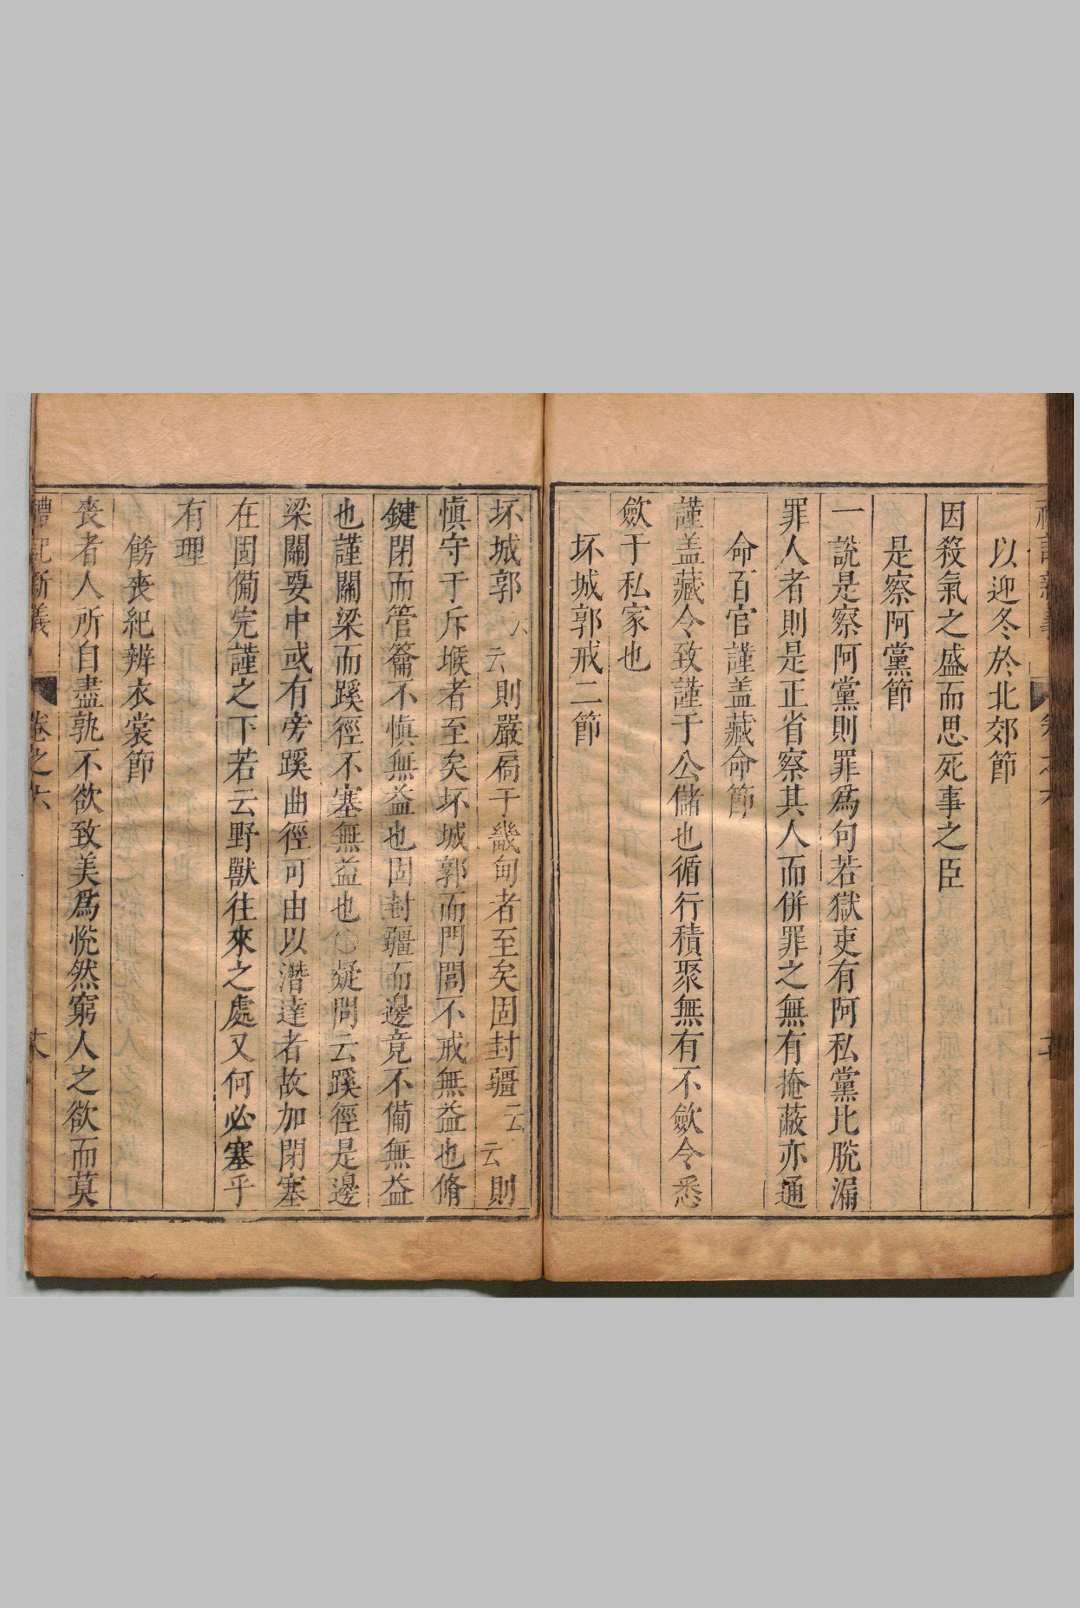 以迎冬於北郊節
因殺氣之盛而思死事之臣
是察阿黨節
一說是察阿黨則罪爲句若獄吏有阿私黨比脫漏
罪人者則是正省察其人而併罪之無有掩蔽亦通
命百官謹盖藏命節
謹盖藏令致謹于公儲也循行積聚無有不歛令悉
歛于私家也
坏城郭戒二節
坏城郭云則嚴扄于畿甸者至矣固封疆云云則
慎守于斥堠者至矣坏城郭而門閭不戒無益也脩
鍵閉而管籥不慎無益也固封疆而邊竟不備無益
也謹關梁而蹊徑不塞無益也疑問云蹊徑是邊
梁關要中或有旁蹊曲徑可由以潛達者故加閉塞
在固備完謹之下若云野獸往來之處又何必塞乎
有理
飭喪紀辨衣裳節
喪者人所自盡孰不欲致美爲恱然窮人之欲而莫
禮記新義
卷之六